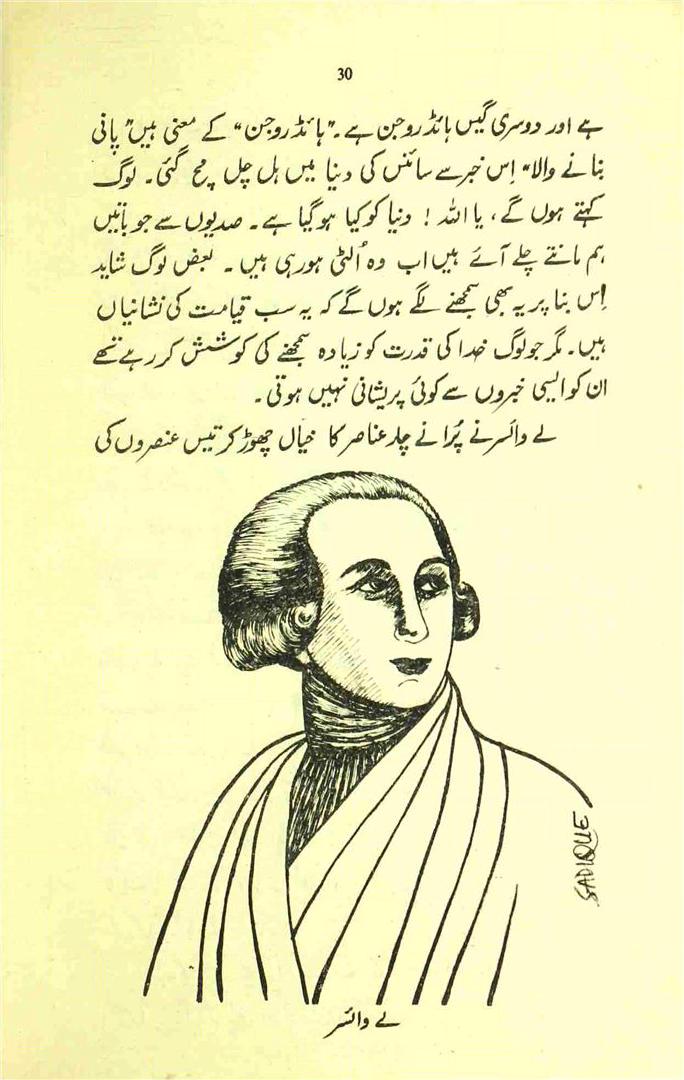 30
ہے اور دوسری گیس ہائڈروجن ہے۔ "ہائڈروجن" کے معنی ہیں "پانی
بنانے والا" اِس خبر سے سائنس کی دنیا میں ہل چل مچ گئی۔ لوگ
کہتے ہوں گے، یا اللہ! دنیا کو کیا ہو گیا ہے۔ صدیوں سے جو باتیں
ہم مانتے چلے آئے ہیں اب وہ اُلٹی ہو رہی ہیں۔ بعض لوگ شاید
اِس بنا پر یہ بھی سمجھنے لگے ہوں گے کہ یہ سب قیامت کی نشانیاں
ہیں۔ مگر جو لوگ خدا کی قدرت کو زیادہ سمجھنے کی کوشش کر رہے تھے
ان کو ایسی خبروں سے کوئی پریشانی نہیں ہوتی۔
لے وائسر نے پُرانے چار عناصر کا خیال چھوڑ کر تیس عنصروں کی
SADIQUE
لے وائسر